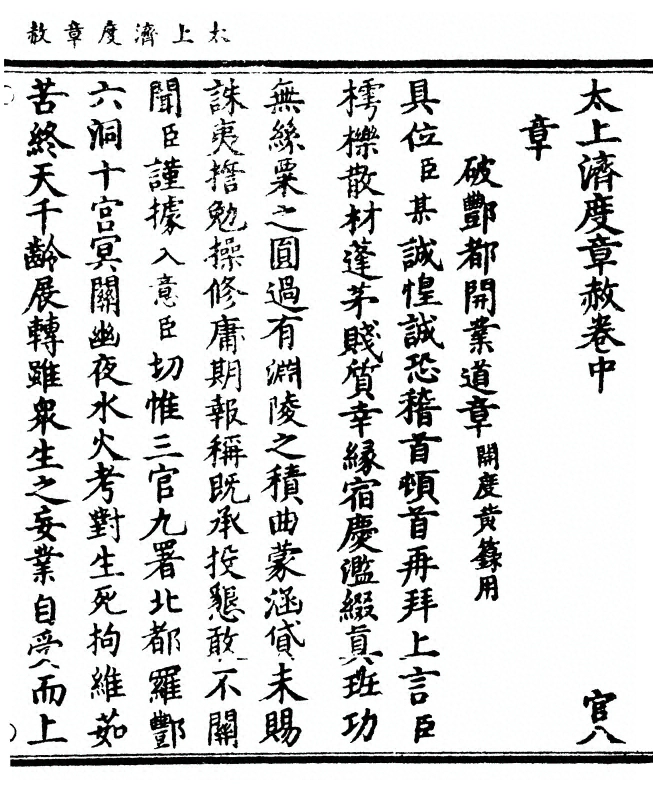 太上濟度章赦
太上濟度章赦卷中 官八
章
破酆都開業道章 開度黃籙用
具位臣某誠惶誠恐稽首頓首再拜上言臣
樗櫟散材蓬茅賤質幸緣宿慶濫綴眞班功
無絲粟之圓過有淵陵之積曲蒙涵貸未賜
誅夷誓勉操修庸期報稱既承投懇敢不關
聞臣謹據入意臣切惟三官九署北都羅酆
六洞十宮冥關幽夜水火考對生死拘維茹
苦終天千齡展轉雖衆生之妄業自受而上